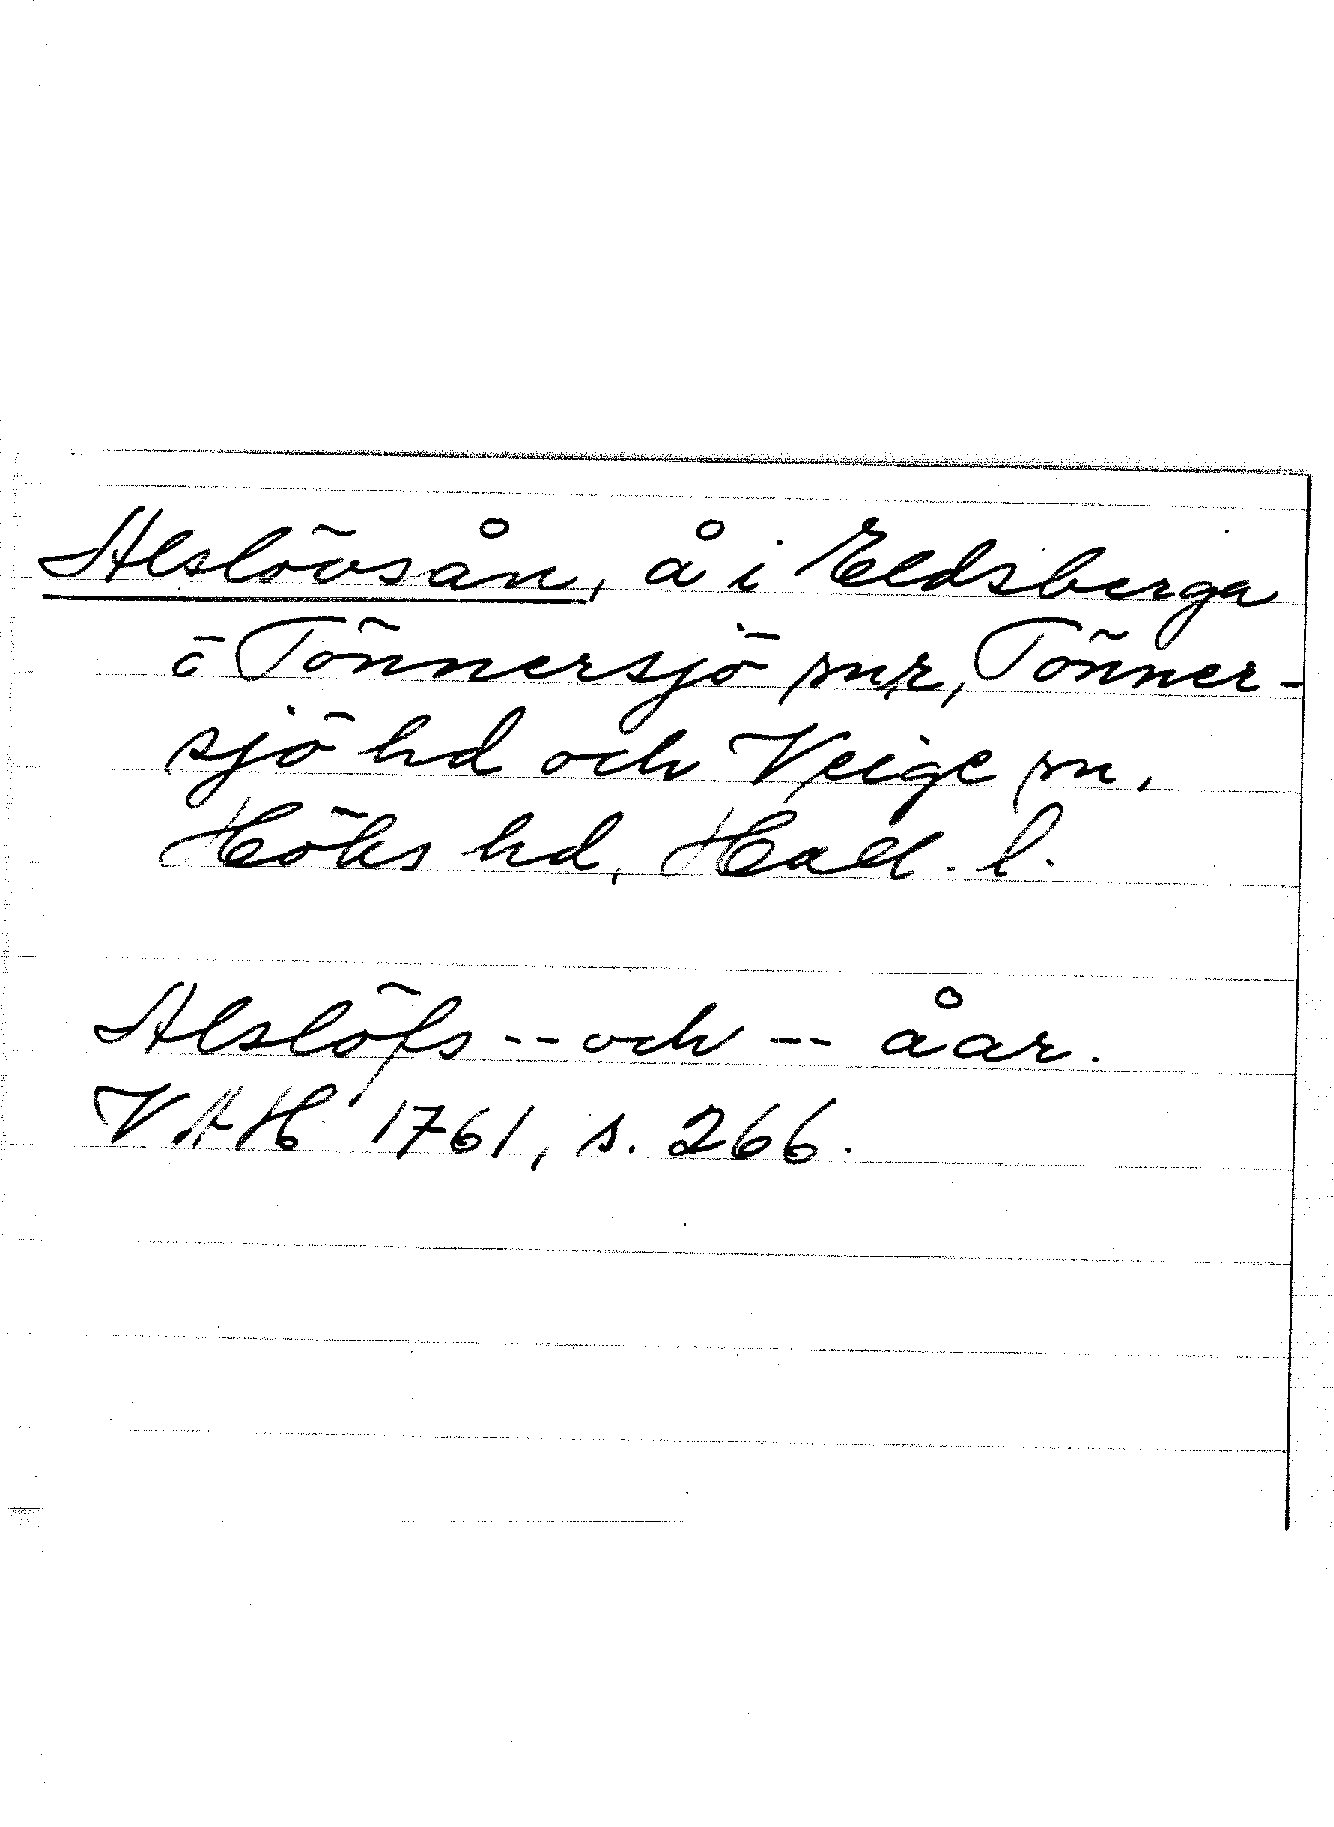 Alslövsån, å i Eldsberga
o Tönnersjö snr, Tönner-
sjö hd och Veige sn,
Höks hd, Hall. l.
Alslöfs -- och -- åar.
VAH 1761, s. 266.